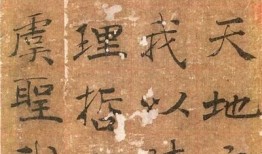 天地
我以
理哲
虞聖